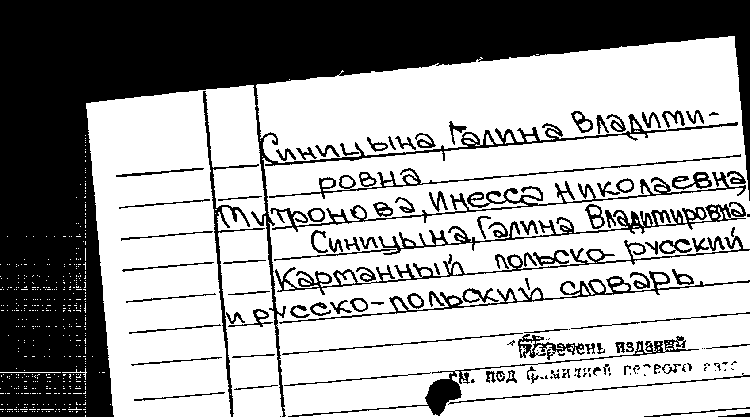 Синицына, Галина Владими-
ровна.
Митронова, Инесса Николаевна,
Синицына, Галина Владимировна.
Карманный польско-русский
и русско-польский словарь.
Перечень изданий
см. под фамилией первого авто